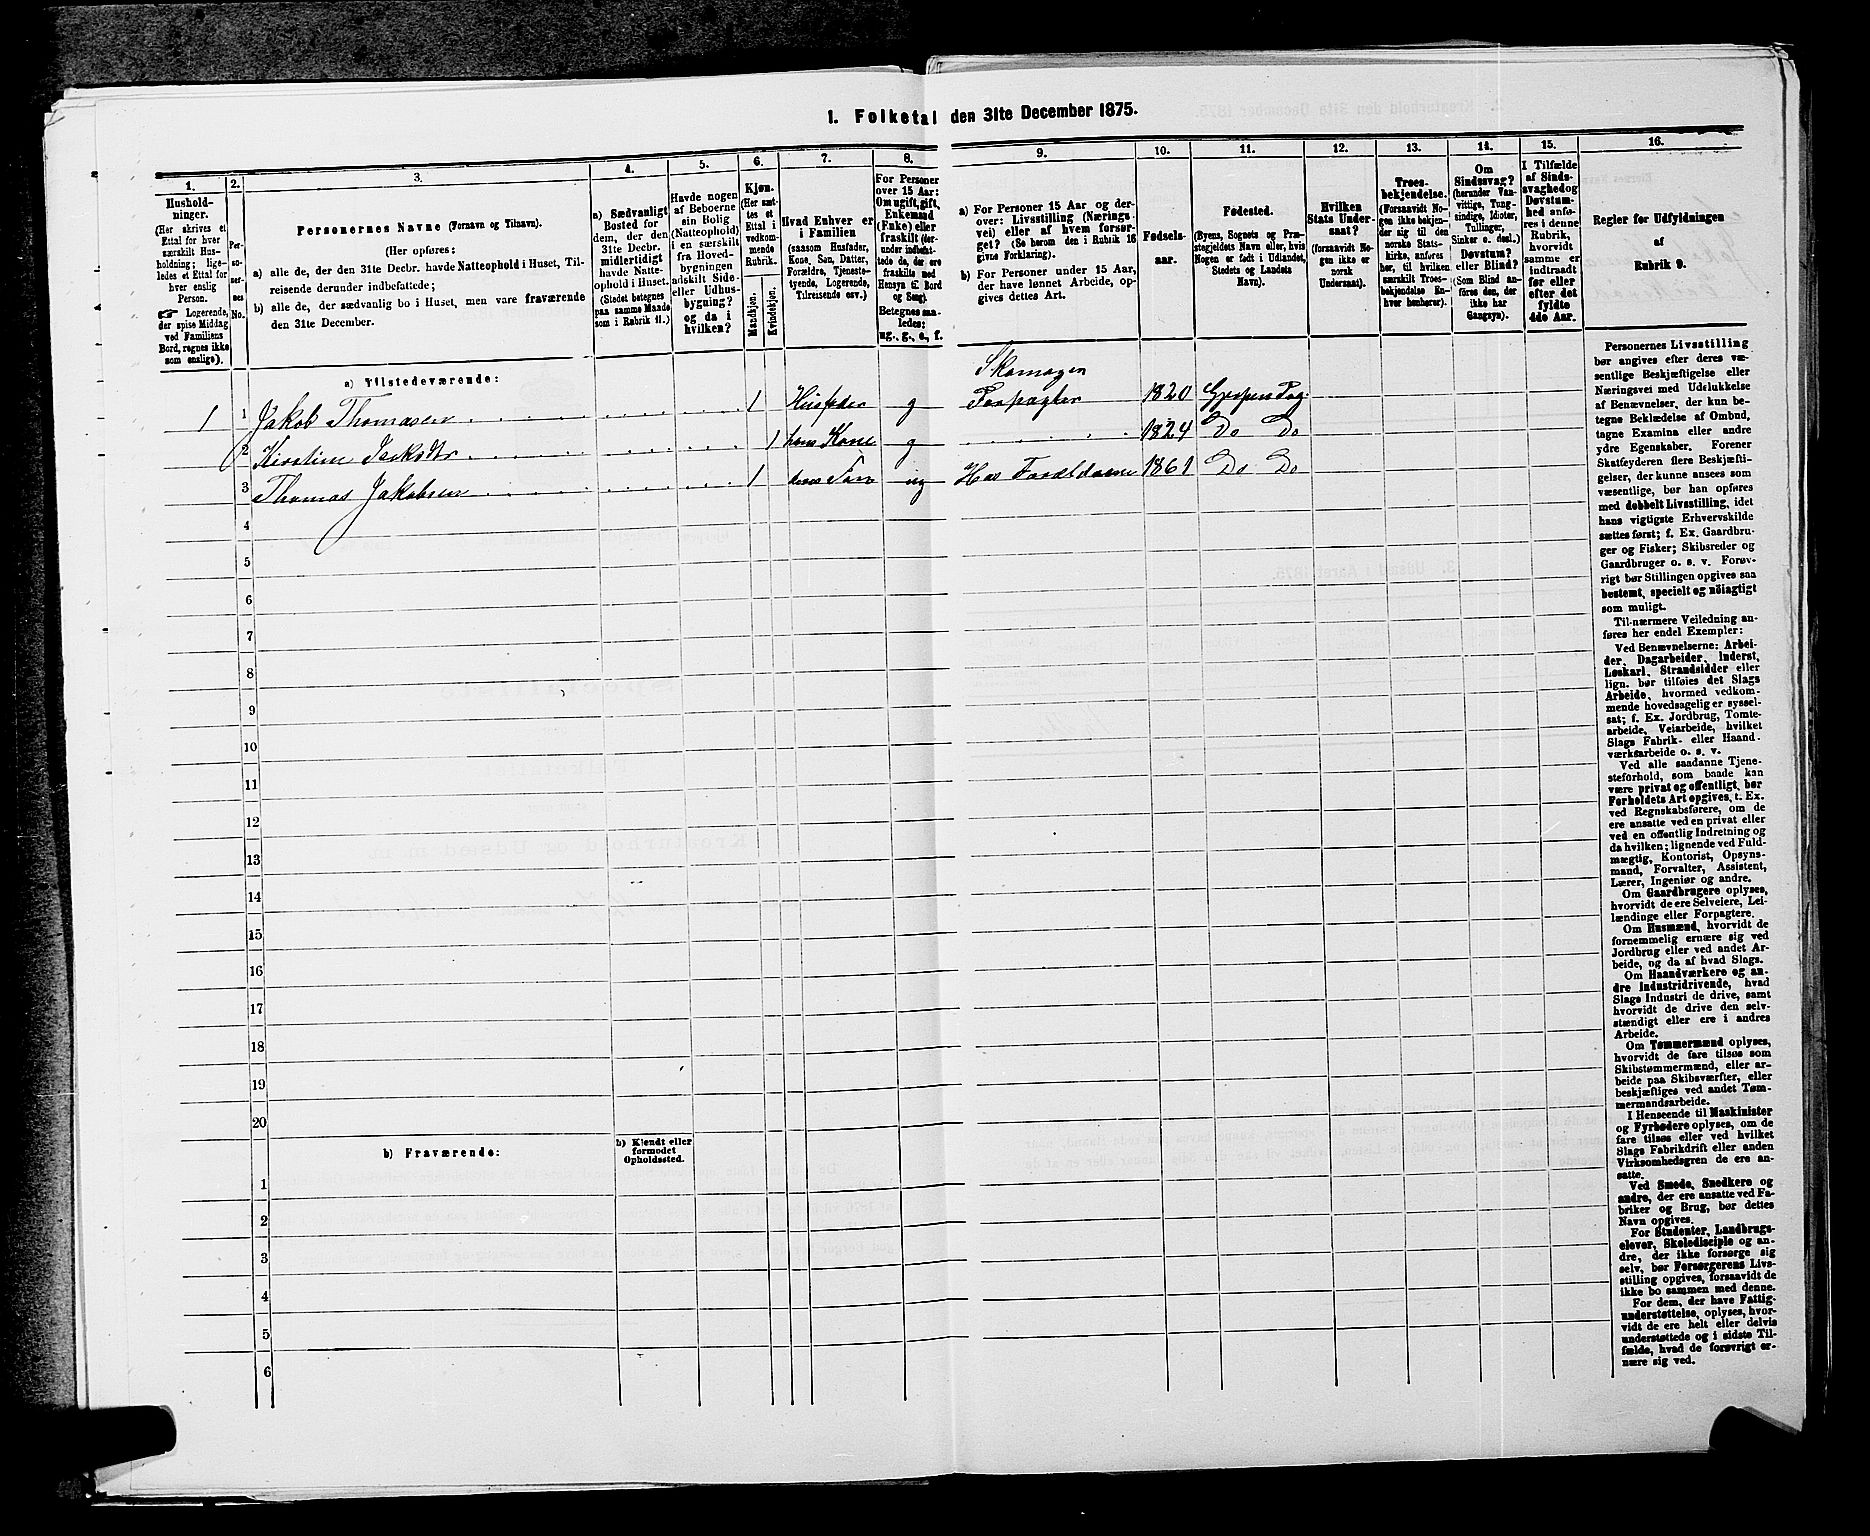 1. Folketal den 31te December 1875.
1.
Hushold-
ninger.
(Her skrives et
Ettal for hver
særskilt Hus-
holdning; lige-
ledes et Ettal for
hver enslig
Person.
Logerende,
der spise Middag
ved Familiens
Bord, regnes ikke
som enslige).
2.
Per-
so-
ner-
nes
No.
3.
Personernes Navne (Fornavn og Tilnavn).
(Her opføres:
a) alle de, der den 31te Decbr. havde Natteophold i Huset, Til-
reisende derunder indbefattede;
b) alle de, der sædvanlig bo i Huset, men vare fraværende
den 31te December.
4.
a) Sædvanligt
Bosted for
dem, der den
31te Decbr.
midlertidigt
havde Natte-
ophold i Huset.
(Stedet betegnes
paa samme Maade
som i Rubrik 11.)
5.
Havde nogen
af Beboerne
sin Bolig
(Natteophold)
i en særskilt
fra Hoved-
bygningen
adskilt Side-
eller Udhus-
bygning?
og da i
hvilken?
6.
Kjøn.
(Her sæt-
tes et
Ettal i
vedkom-
mende
Rubrik.
Mandkjøn.
Kvindekjøn.
7.
Hvad Enhver er
i Familien
(saasom Husfader,
Kone, Søn, Datter,
Forældre, Tjeneste-
tyende, Logerende,
Tilreisende osv.)
8.
For Personer
over 15 Aar:
Om ugift, gift,
Enkemand
(Enke) eller
fraskilt (der-
under indbefat-
tede de, der ere
fraskilte med
Hensyn til Bord
og Seng).
Betegnes saa-
ledes:
ug., g., e., f.
9.
a) For Personer 15 Aar og der-
over: Livsstilling (Nærings-
vei) eller af hvem forsør-
get? (Se herom den i Rubrik 16
givne Forklaring).
b) For Personer under 15 Aar,
der have lønnet Arbeide, op-
gives dettes Art.
10.
Fødsels-
aar.
11.
Fødested.
(Byens, Sognets og Præ-
stegjeldets Navn eller, hvis
Nogen er født i Udlandet,
Stedets og Landets
Navn).
12.
Hvilken
Stats Under-
saat?
(forsaavidt No-
gen ikke er
norsk
Undersaat).
13.
Troes-
bekjendelse.
(Forsaavidt No-
gen ikke bekjen-
der sig til den
norske Stats-
kirke, anføres
her, til hvilken
særskilt Troes-
bekjendelse En-
hver henhører).
14.
Om
Sindssvag?
(herunder Van-
vittige, Tung-
sindige, Idioter,
Tullinger,
Sinker o. desl.)
Døvstum?
eller Blind?
(Som Blind an-
føres den, der
ikke har
Gangsyn).
15.
I Tilfælde
af Sinds-
svaghed og
Døvstum-
hed anfø-
res i denne
Rubrik,
hvorvidt
samme er
indtraadt
før eller
efter det
fyldte
4de Aar.
16.
Regler for Udfyldningen
af
Rubrik 9.
a) Tilstedeværende:
Skomager
1 1 Jakob Thomasen 1 Husfader g Forpagter 1820 Gjerpen Pog
2 Kirstine 1 hans Kone g 1824 Do Do
3 Thomas Jakobsen 1 deres Søn ug Hos Forældrene 1861 Do Do
4
5
6
7
8
9
10
11
12
13
14
15
16
17
18
19
20
b) Fraværende:
b) Kjendt eller
formodet
Opholdssted.
1
2
3
4
5
6
Personernes Livsstilling
bør angives efter deres væ-
sentlige Beskjæftigelse eller
Næringsvei med Udelukkelse
af Benævnelser, der kun be-
tegne Beklædelse af Ombud,
tagne Examina eller andre
ydre Egenskaber. Forener
Skatteyderen flere Beskjæfti-
gelser, der kunne ansees som
væsentlige, bør han opføres
med dobbelt Livsstilling, idet
hans vigtigste Erhvervskilde
sættes først; f. Ex. Gaardbru-
ger og Fisker; Skibsreder og
Gaardbruger o. s. v. Forøv-
rigt bør Stillingen opgives saa
bestemt, specielt og nøiagtigt
som muligt.
Til nærmere Veiledning an-
føres her endel Exempler:
Ved Benævnelserne: Arbei-
der, Dagarbeider, Inderst,
Løskarl, Strandsidder eller
lign. bør tilføies det Slags
Arbeide, hvormed vedkom-
mende hovedsagelig er syssel-
sat; f. Ex. Jordbrug, Tomte-
arbeide, Veiarbeide, hvilket
Slags Fabrik- eller Haand-
værksarbeide o. s. v.
Ved alle saadanne Tjene-
steforhold, som baade kan
være privat og offentligt, bør
Forholdets Art opgives, t. Ex.
ved Regnskabsførere, om de
ere ansatte ved en privat eller
ved en offentlig Indretning og
da hvilken; lignende ved Fuld-
mægtig, Kontorist, Opsyns-
mand, Forvalter, Assistent,
Lærer, Ingeniør og andre.
Om Gaardbrugere oplyses,
hvorvidt de ere Selveiere, Lei-
lændinge eller Forpagtere.
Om Husmænd, hvorvidt de
fornemmelig ernære sig ved
Jordbrug eller ved andet Ar-
beide, og da af hvad Slags.
Om Haandværkere og an-
dre Industridrivende, hvad
Slags Industri de drive, samt
hvorvidt de drive den selv-
stændigt eller ere i andres
Arbeide.
Om Tømmermænd oplyses,
hvorvidt de fare tilsøs som
Skibstømmermænd, eller ar-
beide paa Skibsværfter, eller
beskjæftiges ved andet Tøm-
mermandsarbeide.
I Henseende til Maskinister
og Fyrbødere oplyses, om de
fare tilsøs eller ved hvilket
Slags Fabrikdrift eller anden
Virksomhedsgren de ere an-
satte.
Ved Smede, Snedkere og
andre, der ere ansatte ved Fa-
briker og Brug, bør dettes
Navn opgives.
For Studenter, Landbrugs-
elever, Skoledisciple og an-
dre, der ikke forsørge sig
selv, bør Forsørgerens Livs-
stilling opgives, forsaavidt de
ikke bo sammen med denne.
For dem, der have Fattig-
understøttelse, oplyses, hvor-
vidt de ere helt eller delvis
understøttede og i sidste Til-
fælde, hvad de forøvrigt er-
nære sig ved.